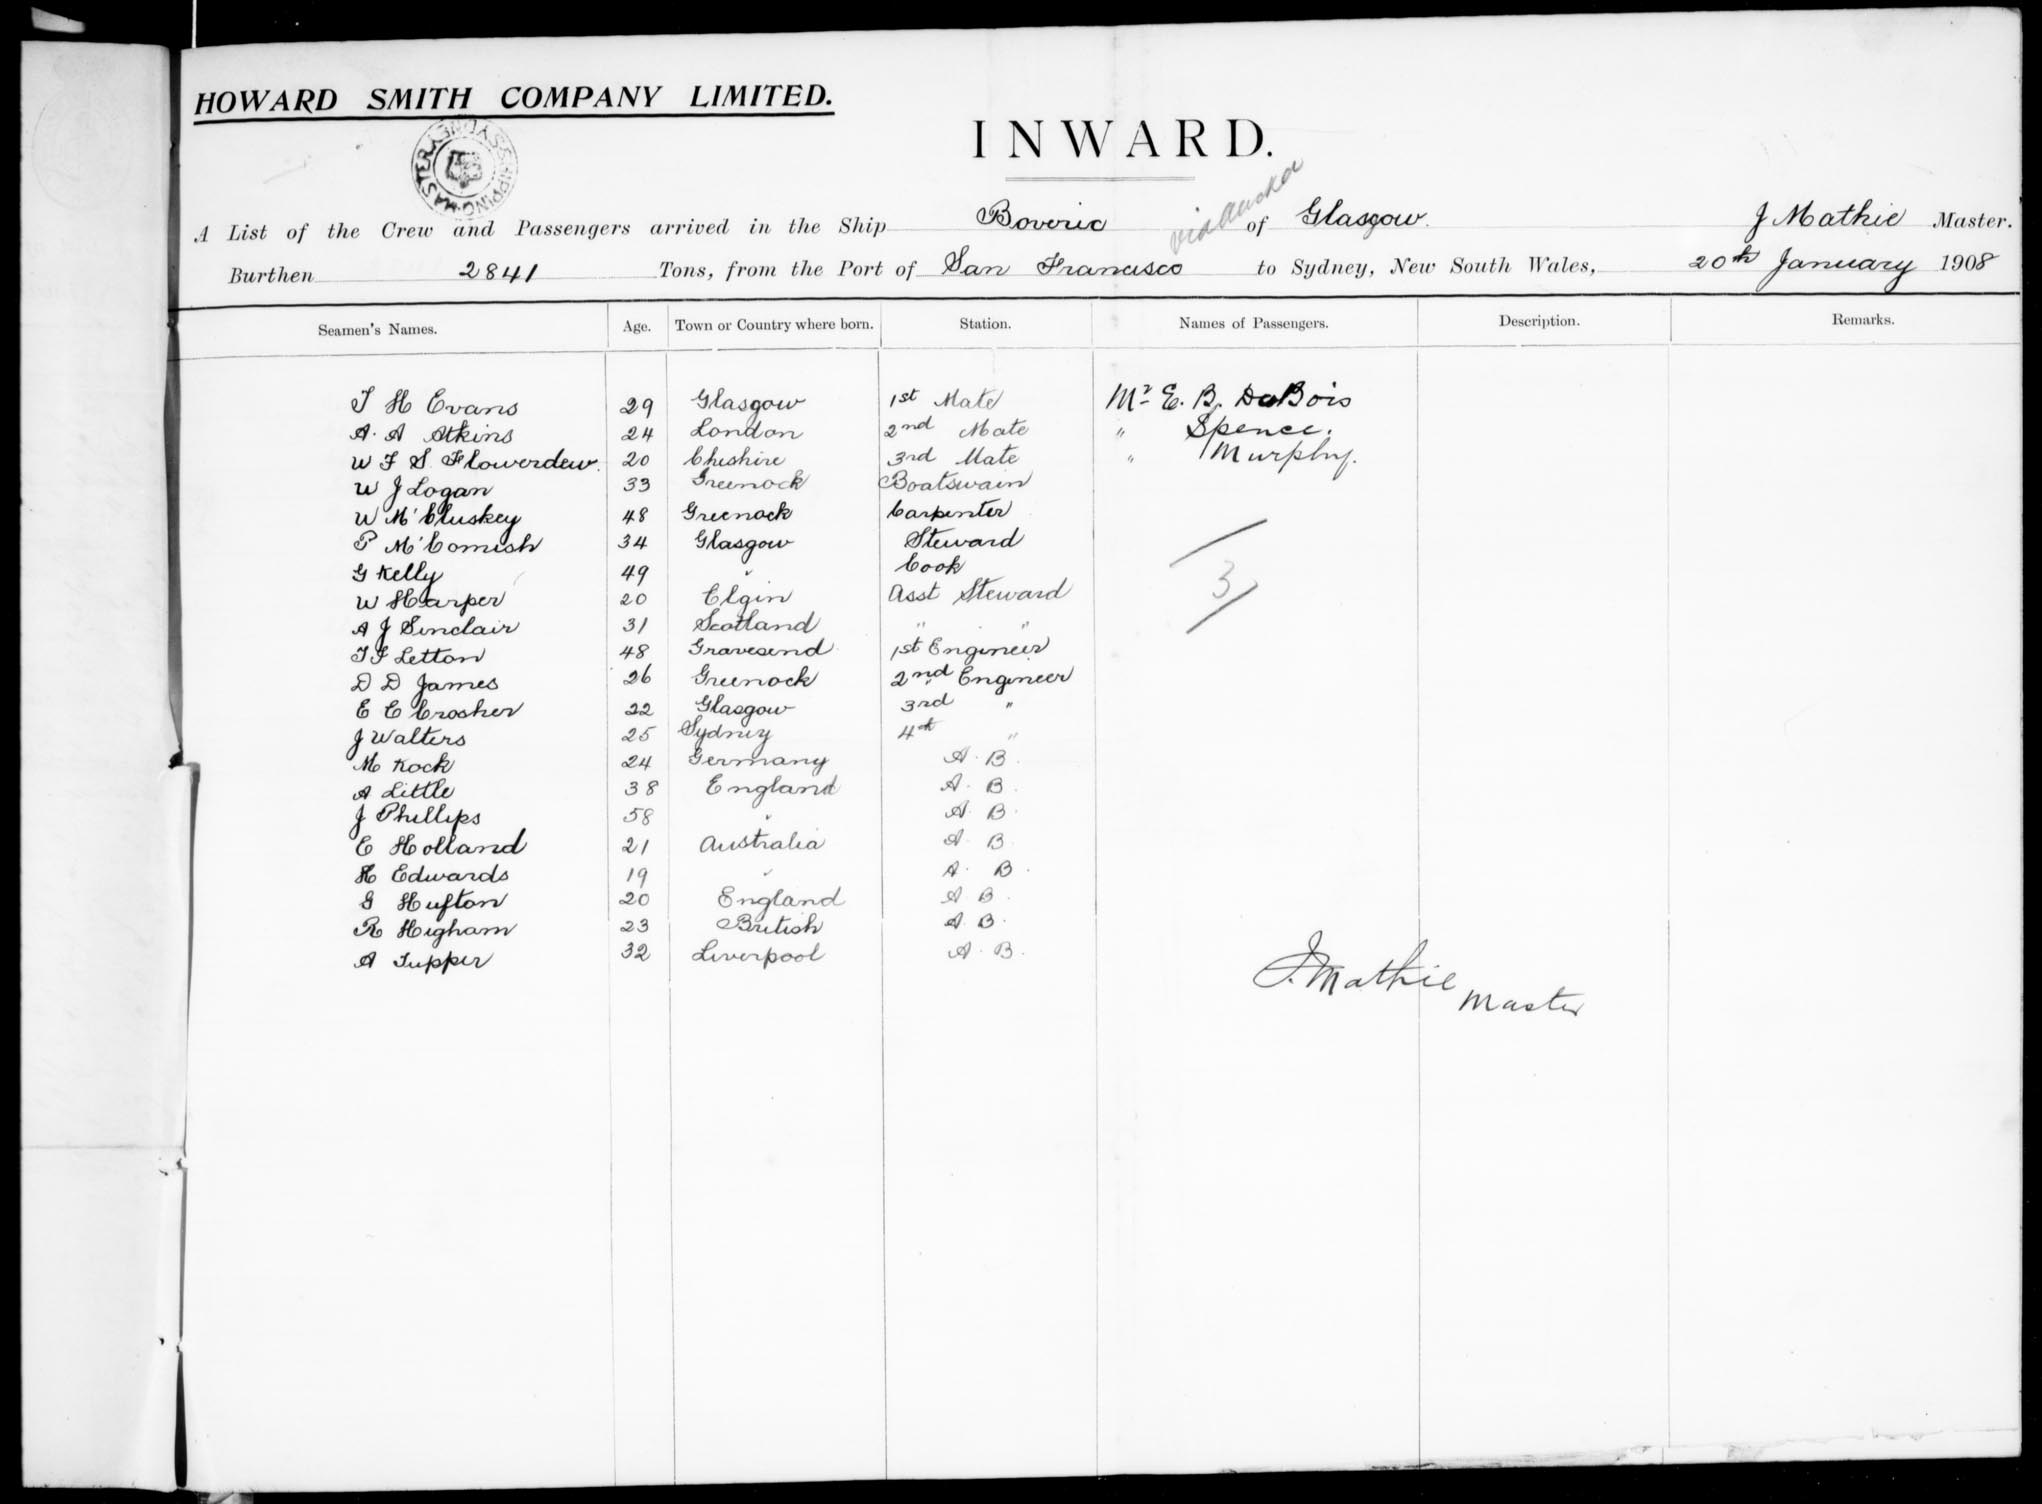 HOWARD SMITH COMPANY LIMITED.
SHIPPING MASTER SYDNEY
INWARD.
A List of the Crew and Passengers arrived in the Ship Boveric of Glasgow. J Mathie Master.
via
Burthen 2841 Tons, from the Port of San Francisco to Sydney, New South Wales, 20th January 1908
Seamen's Names. Age. Town or Country where born. Station. Names of Passengers. Description. Remarks.
T H Evans 29 Glasgow 1st Mate Mr E. B. DuBois
A. A Atkins 24 London 2nd Mate " Spence.
W F S. Flowerdew. 20 Cheshire 3rd Mate " Murphy.
W J Logan 33 Greenock Boatswain
W Mc'Cluskey 48 Greenock Carpenter
P Mc'Comish 34 Glasgow Steward
G Kelly 49 " Cook
W Harper 20 Elgin Asst Steward
3
A J Sinclair 31 Scotland " "
T F Letton 48 Gravesend 1st Engineer
D D James 26 Greenock 2nd Engineer
E C Crosher 22 Glasgow 3rd "
J Walters 25 Sydney 4th "
M Kock 24 Germany A. B.
A Little 38 England A. B.
J Phillips 58 " A. B.
E Holland 21 Australia A. B
H Edwards 19 " A. B.
G Hufton 20 England A B.
R Higham 23 British A. B.
A Tupper 32 Liverpool A. B.
J. Mathie Master